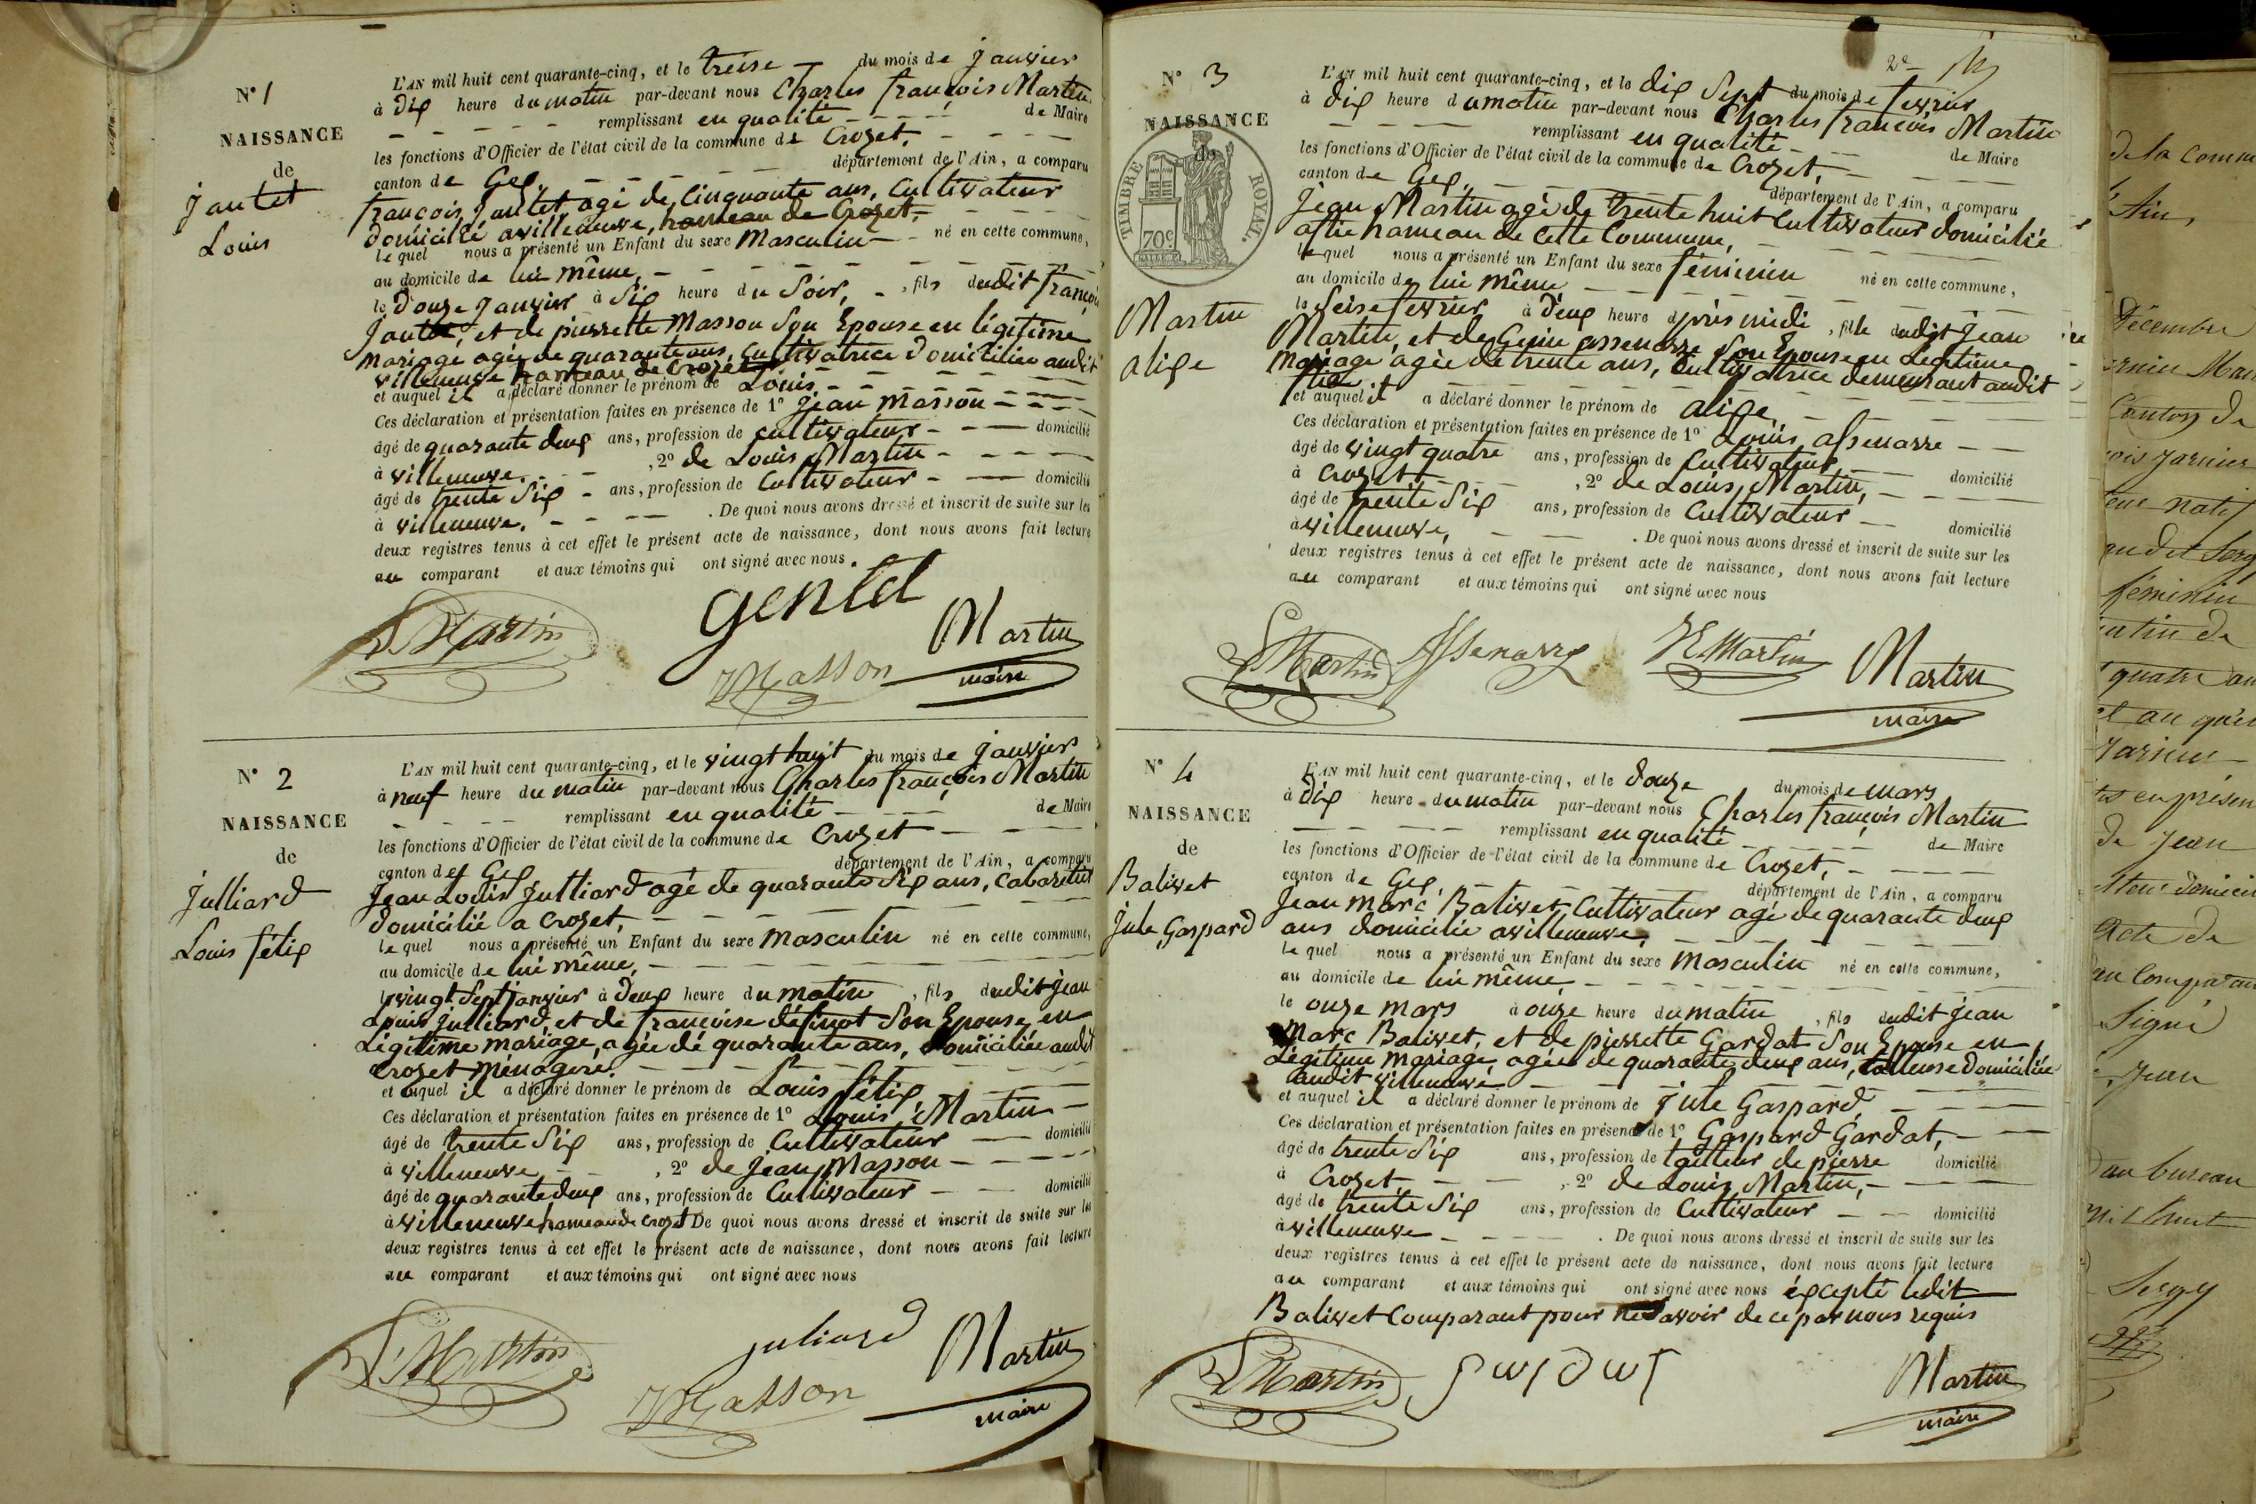 N° 1
NAISSANCE
de
Jantet
Louis
L'AN mil huit cent quarante-cinq, et le treise du mois de janvier
à dix heure du matin par-devant nous Charles françois Martin
remplissant en qualité de Maire
les fonctions d'Officier de l'état civil de la commune de Crozet,
canton de Gex. département de l'Ain, a comparu
françois Jantet agé de Cinquante ans, Cultivateur
domicilié a villeneuve, hameau de Crozet,
le quel nous a présenté un Enfant du sexe Masculin né en cette commune,
au domicile de lui même,
le douze Janvier à Six heure du Soir, , fils dudit françois
Jantet, et de pierrette Masson Son Epouse en légitime
Mariage agée de quarante ans, cultivatrice domiciliée audit
villeneuve hameau de Crozet
et auquel il a déclaré donner le prénom de Louis
Ces déclaration et présentation faites en présence de 1° Jean Masson
âgé de quarante deux ans, profession de cultivateur domicilié
à villeneuve. , 2° de Louis Martin
âgé de trente Six ans, profession de Cultivateur domicilié
à villeneuve. . De quoi nous avons dressé et inscrit de suite sur les
deux registres tenus à cet effet le présent acte de naissance, dont nous avons fait lecture
au comparant et aux témoins qui ont signé avec nous.
L Martin gentet JMasson Martin
maire
N° 2
NAISSANCE
de
Julliard
Louis félix
L'AN mil huit cent quarante-cinq, et le vingt huit du mois de janvier
à neuf heure du matin par-devant nous Charles françois Martin
remplissant en qualité de Maire
les fonctions d'Officier de l'état civil de la commune de Crozet
canton de Gex département de l'Ain, a comparu
Jean Louis Julliard agé de quarante Six ans, Cabaretier
domicilié a Crozet,
le quel nous a présenté un Enfant du sexe Masculin né en cette commune,
au domicile de lui même,
le vingt Sept janvier à deux heure du matin , fils dudit Jean
Louis Julliard, et de françoise Son Epouse, en
Légitime mariage, agée de quarante ans, domiciliée audit
Crozet Ménagere.
et auquel il a déclaré donner le prénom de Louis félix,
Ces déclaration et présentation faites en présence de 1° Louis Martin
âgé de trente Six ans, profession de Cultivateur domicilié
à villeneuve , 2° de Jean Masson
âgé de quarante deux ans, profession de Cultivateur domicilié
à villeneuve hameau de Crozet De quoi nous avons dressé et inscrit de suite sur les
deux registres tenus à cet effet le présent acte de naissance, dont nous avons fait lecture
au comparant et aux témoins qui ont signé avec nous
L Martin juliard JMasson Martin
maire
2e
N° 3
NAISSANCE
de
TIMBRE ROYAL.
70c
Martin
alixe
L'AN mil huit cent quarante-cinq, et le dix Sept du mois de fevrier
à dix heure du matin par-devant nous Charles françois Martin
remplissant en qualité de Maire
les fonctions d'Officier de l'état civil de la commune de Crozet,
canton de Gex. département de l'Ain, a comparu
Jean Martin agé de trente huit Cultivateur domicilié
hameau de Cette Commune,
le quel nous a présenté un Enfant du sexe féminin né en cette commune,
au domicile de lui même
le Seise fevrier à deux heure après midi , fille dudit Jean
Martin, et de assenarre Son Epouse en Légitime
Mariage agée de trente ans, Cultivatrice demeurant audit
et auquel il a déclaré donner le prénom de alixe
Ces déclaration et présentation faites en présence de 1° Louis, assenarre
âgé de vingt quatre ans, profession de Cultivateur domicilié
à Crozet, , 2° de Louis Martin,
âgé de trente Six ans, profession de Cultivateur domicilié
à villeneuve, . De quoi nous avons dressé et inscrit de suite sur les
deux registres tenus à cet effet le présent acte de naissance, dont nous avons fait lecture
au comparant et aux témoins qui ont signé avec nous
L Martin Assenarre Martin Martin
maire
N° 4
NAISSANCE
de
Balivet
Jule Gaspard
L'AN mil huit cent quarante-cinq, et le douze du mois de mars
à dix heure du matin par-devant nous Charles françois Martin
remplissant en qualité de Maire
les fonctions d'Officier de l'état civil de la commune de Crozet,
canton de Gex. département de l'Ain, a comparu
Jean Marc Balivet Cultivateur agé de quarante deux
ans domicilié a villeneuve,
le quel nous a présenté un Enfant du sexe Masculin né en cette commune,
au domicile de lui même,
le onze mars à onze heure du matin , fils dudit Jean
Marc Balivet, et de pierrette Gardat Son Epouse en
Légitime Mariage, agée de quarante deux ans, domiciliée
audit villeneuve
et auquel il a déclaré donner le prénom de Jule Gaspard
Ces déclaration et présentation faites en présence de 1° Gaspard Gardat,
âgé de trente Six ans, profession de tailleur de pierre domicilié
à Crozet , 2° de Louis Martin,
âgé de trente Six ans, profession de Cultivateur domicilié
à villeneuve . De quoi nous avons dressé et inscrit de suite sur les
deux registres tenus à cet effet le présent acte de naissance, dont nous avons fait lecture
au comparant et aux témoins qui ont signé avec nous éxcepté ledit
Balivet Comparant pour ne Savoir de ce par nous requis
L Martin Martin
maire
de la comm
Ain,
Décembre
Canton de
féminin
quatre
de Jean
Acte de
Signé
Jean
bureau
Sergy